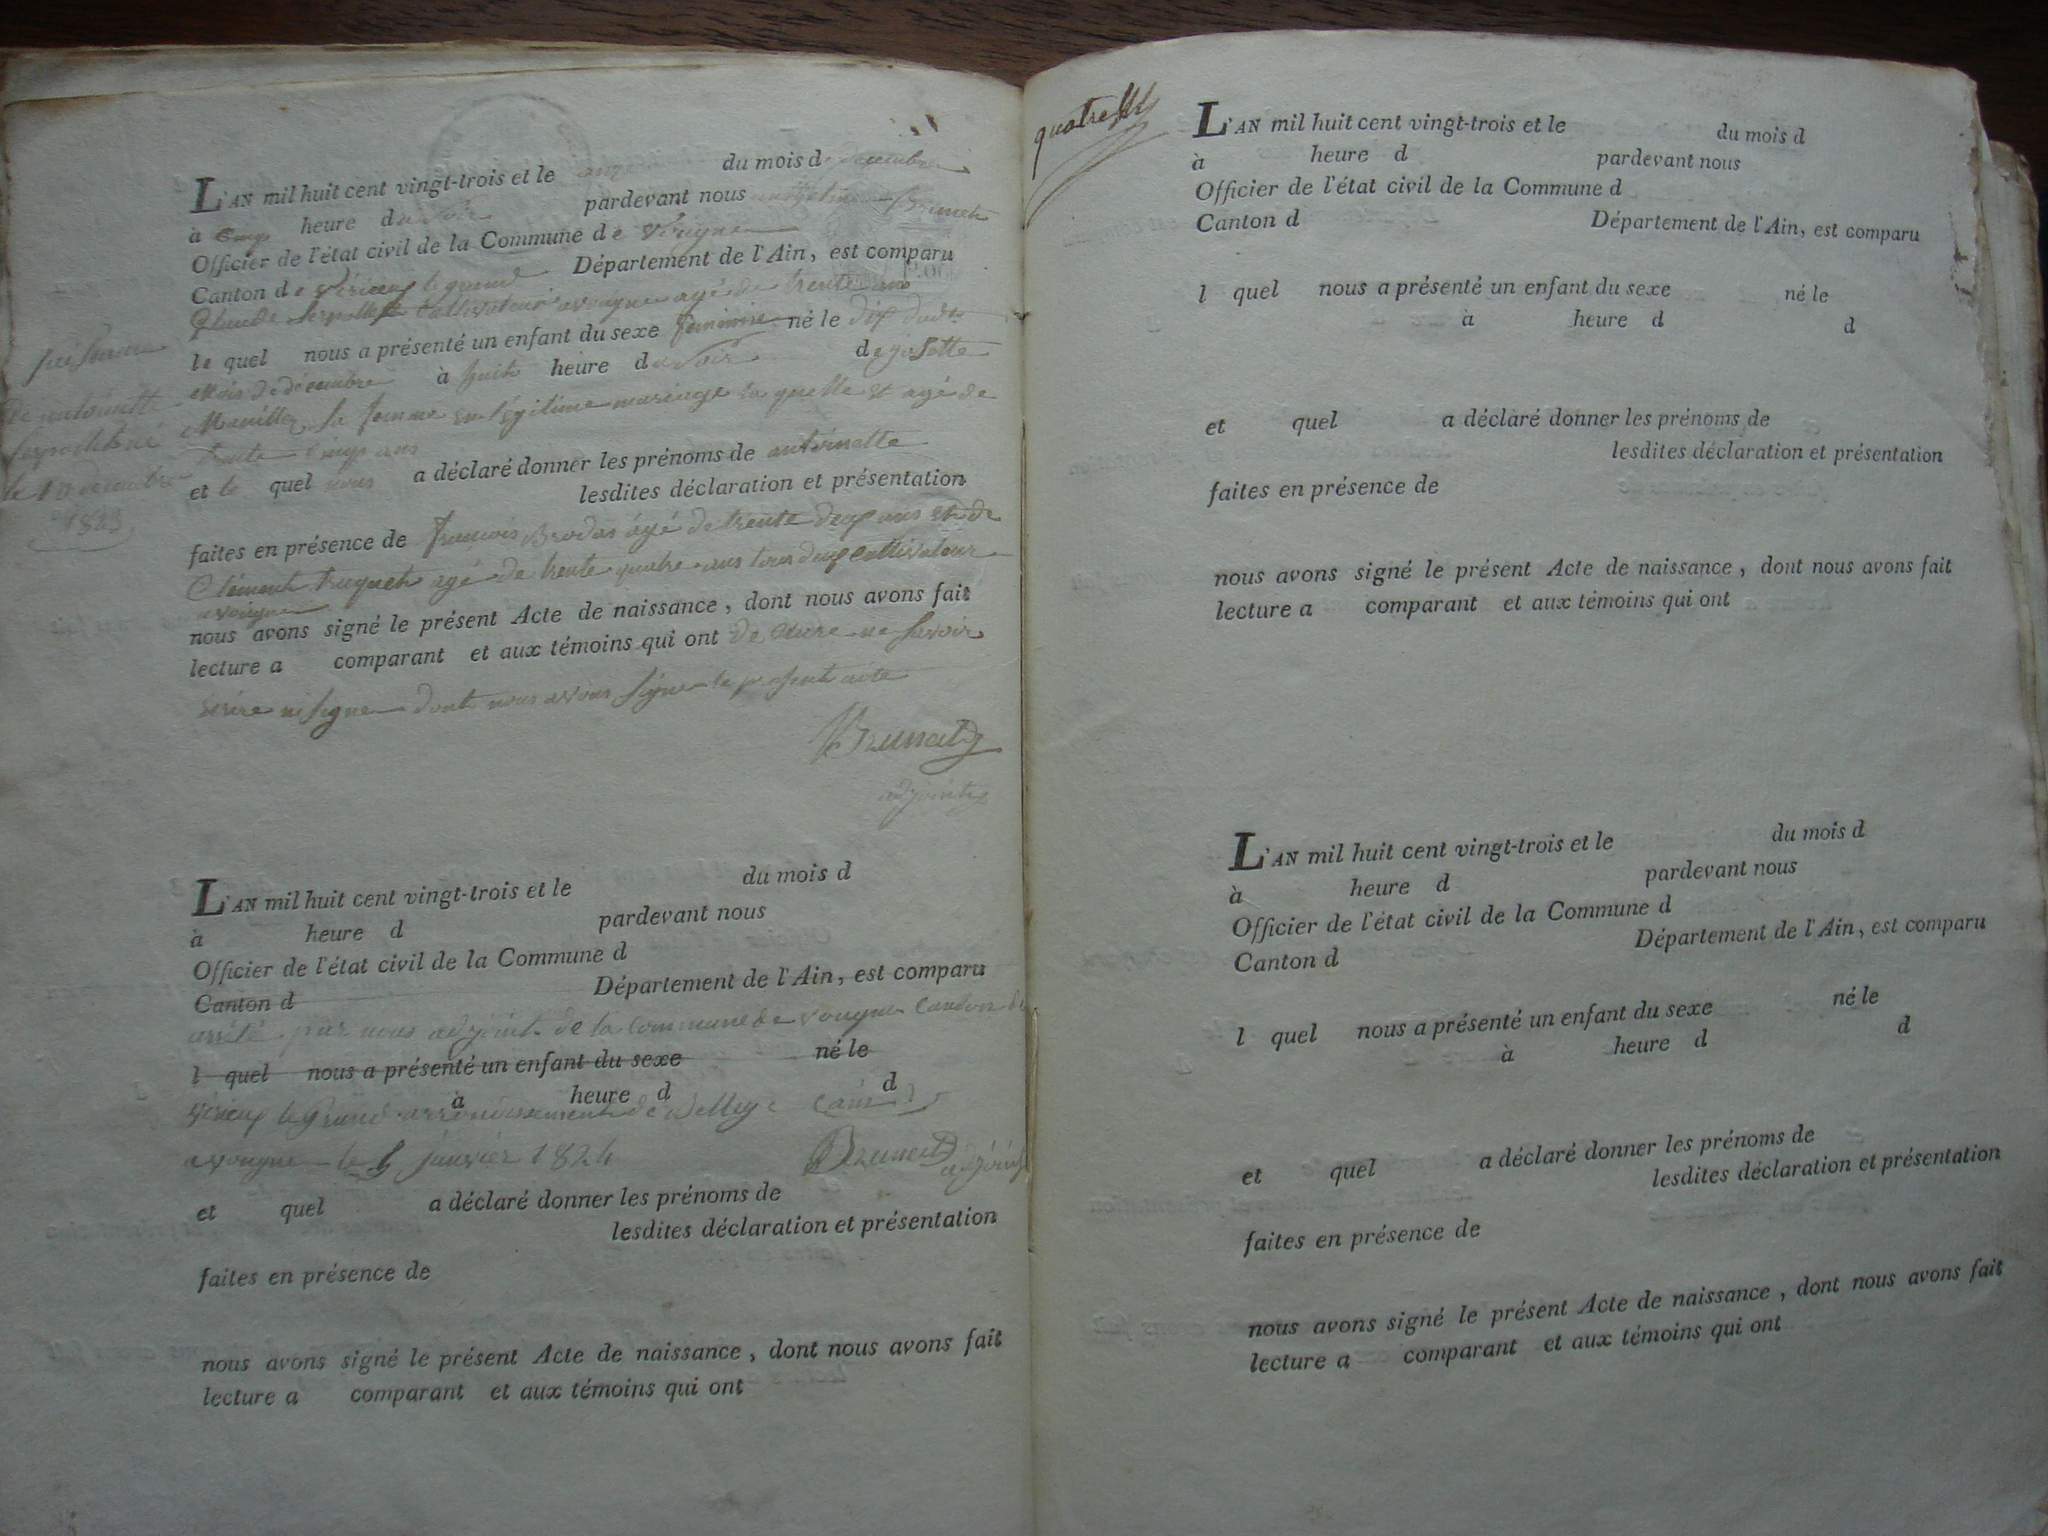 L'AN mil huit cent vingt-trois et le onze du mois de decembre
à cinq heure du soir pardevant nous Brunet
Officier de l'état civil de la Commune de vougne
Canton de virieux le grand Département de l'Ain, est comparu
Claude Serpollet Cultivateur a vougne agé de trente ans
le quel nous a présenté un enfant du sexe feminine né le dix dudit
mois de décembre à huit heure du soir de josette
sa femme en légitime mariage la quelle est agé de
trente cinq ans
et le quel nous a déclaré donner les prénoms de antoinette
lesdites déclaration et présentation
faites en présence de françois Brodas agé de trente deux ans et de
Clément truquet agé de trente quatre ans tous deux cultivateur
a vougne
nous avons signé le présent Acte de naissance, dont nous avons fait
lecture a comparant et aux témoins qui ont de clare ne savoir
écrire ni signe dont nous avons signe le present acte
Brunet
adjoint
naissance
de antoinette
Serpollet né
le 10 decembre
1823
L'AN mil huit cent vingt-trois et le du mois d
à heure d pardevant nous
Officier de l'état civil de la Commune d
Canton d Département de l'Ain, est comparu
arrêté par nous adjoint de la commune de vougne canton de
l quel nous a présenté un enfant du sexe né le
à heure d d
virieux le Grand arrondissement de Belley
a vougne le 1 janvier 1824 Brunet adjoint
et quel a déclaré donner les prénoms de
lesdites déclaration et présentation
faites en présence de
nous avons signé le présent Acte de naissance, dont nous avons fait
lecture a comparant et aux témoins qui ont
quatre
L'AN mil huit cent vingt-trois et le du mois d
à heure d pardevant nous
Officier de l'état civil de la Commune d
Canton d Département de l'Ain, est comparu
l quel nous a présenté un enfant du sexe né le
à heure d d
et quel a déclaré donner les prénoms de
lesdites déclaration et présentation
faites en présence de
nous avons signé le présent Acte de naissance, dont nous avons fait
lecture a comparant et aux témoins qui ont
L'AN mil huit cent vingt-trois et le du mois d
à heure d pardevant nous
Officier de l'état civil de la Commune d
Canton d Département de l'Ain, est comparu
l quel nous a présenté un enfant du sexe né le
à heure d d
et quel a déclaré donner les prénoms de
lesdites déclaration et présentation
faites en présence de
nous avons signé le présent Acte de naissance, dont nous avons fait
lecture a comparant et aux témoins qui ont